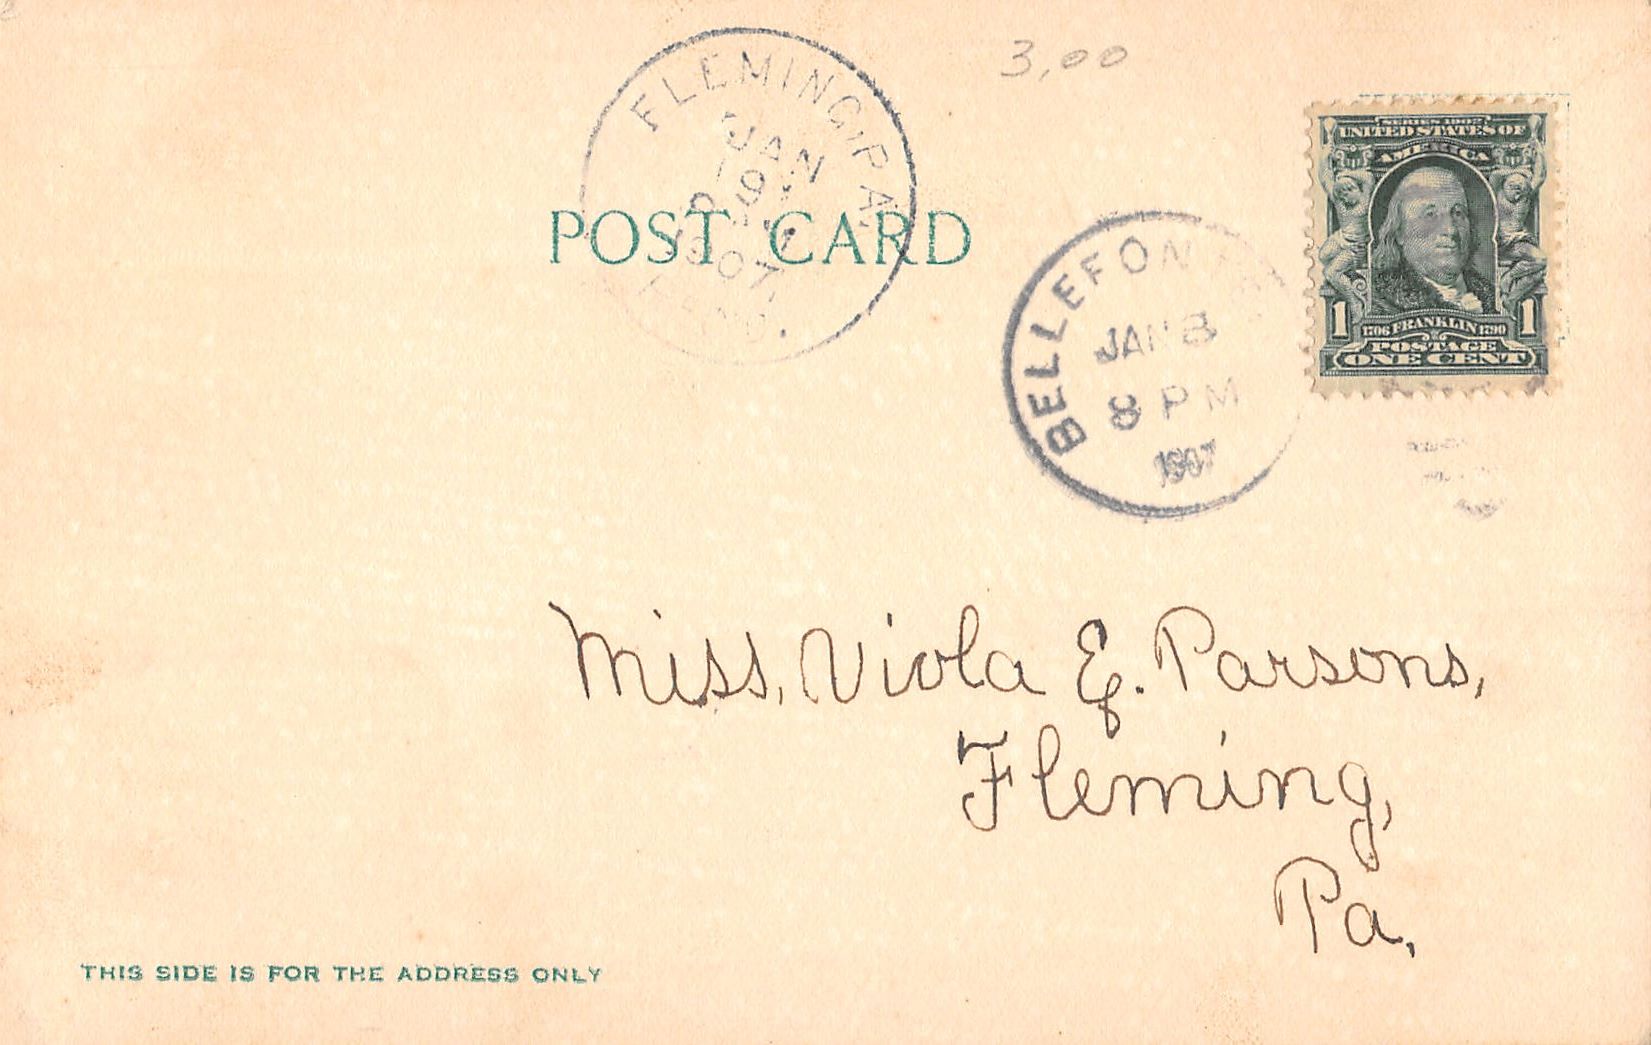 3,00
FLEMING, PA.
JAN
9
1907
REC'D.
POST CARD
BELLEFON
JAN 8
8 PM
1907
SERIES 1902
UNITED STATES OF
AMERICA
1 1706 FRANKLIN 1790 1
POSTAGE
ONE CENT
Miss, Viola E. Parsons,
Fleming,
Pa,
THIS SIDE IS FOR THE ADDRESS ONLY